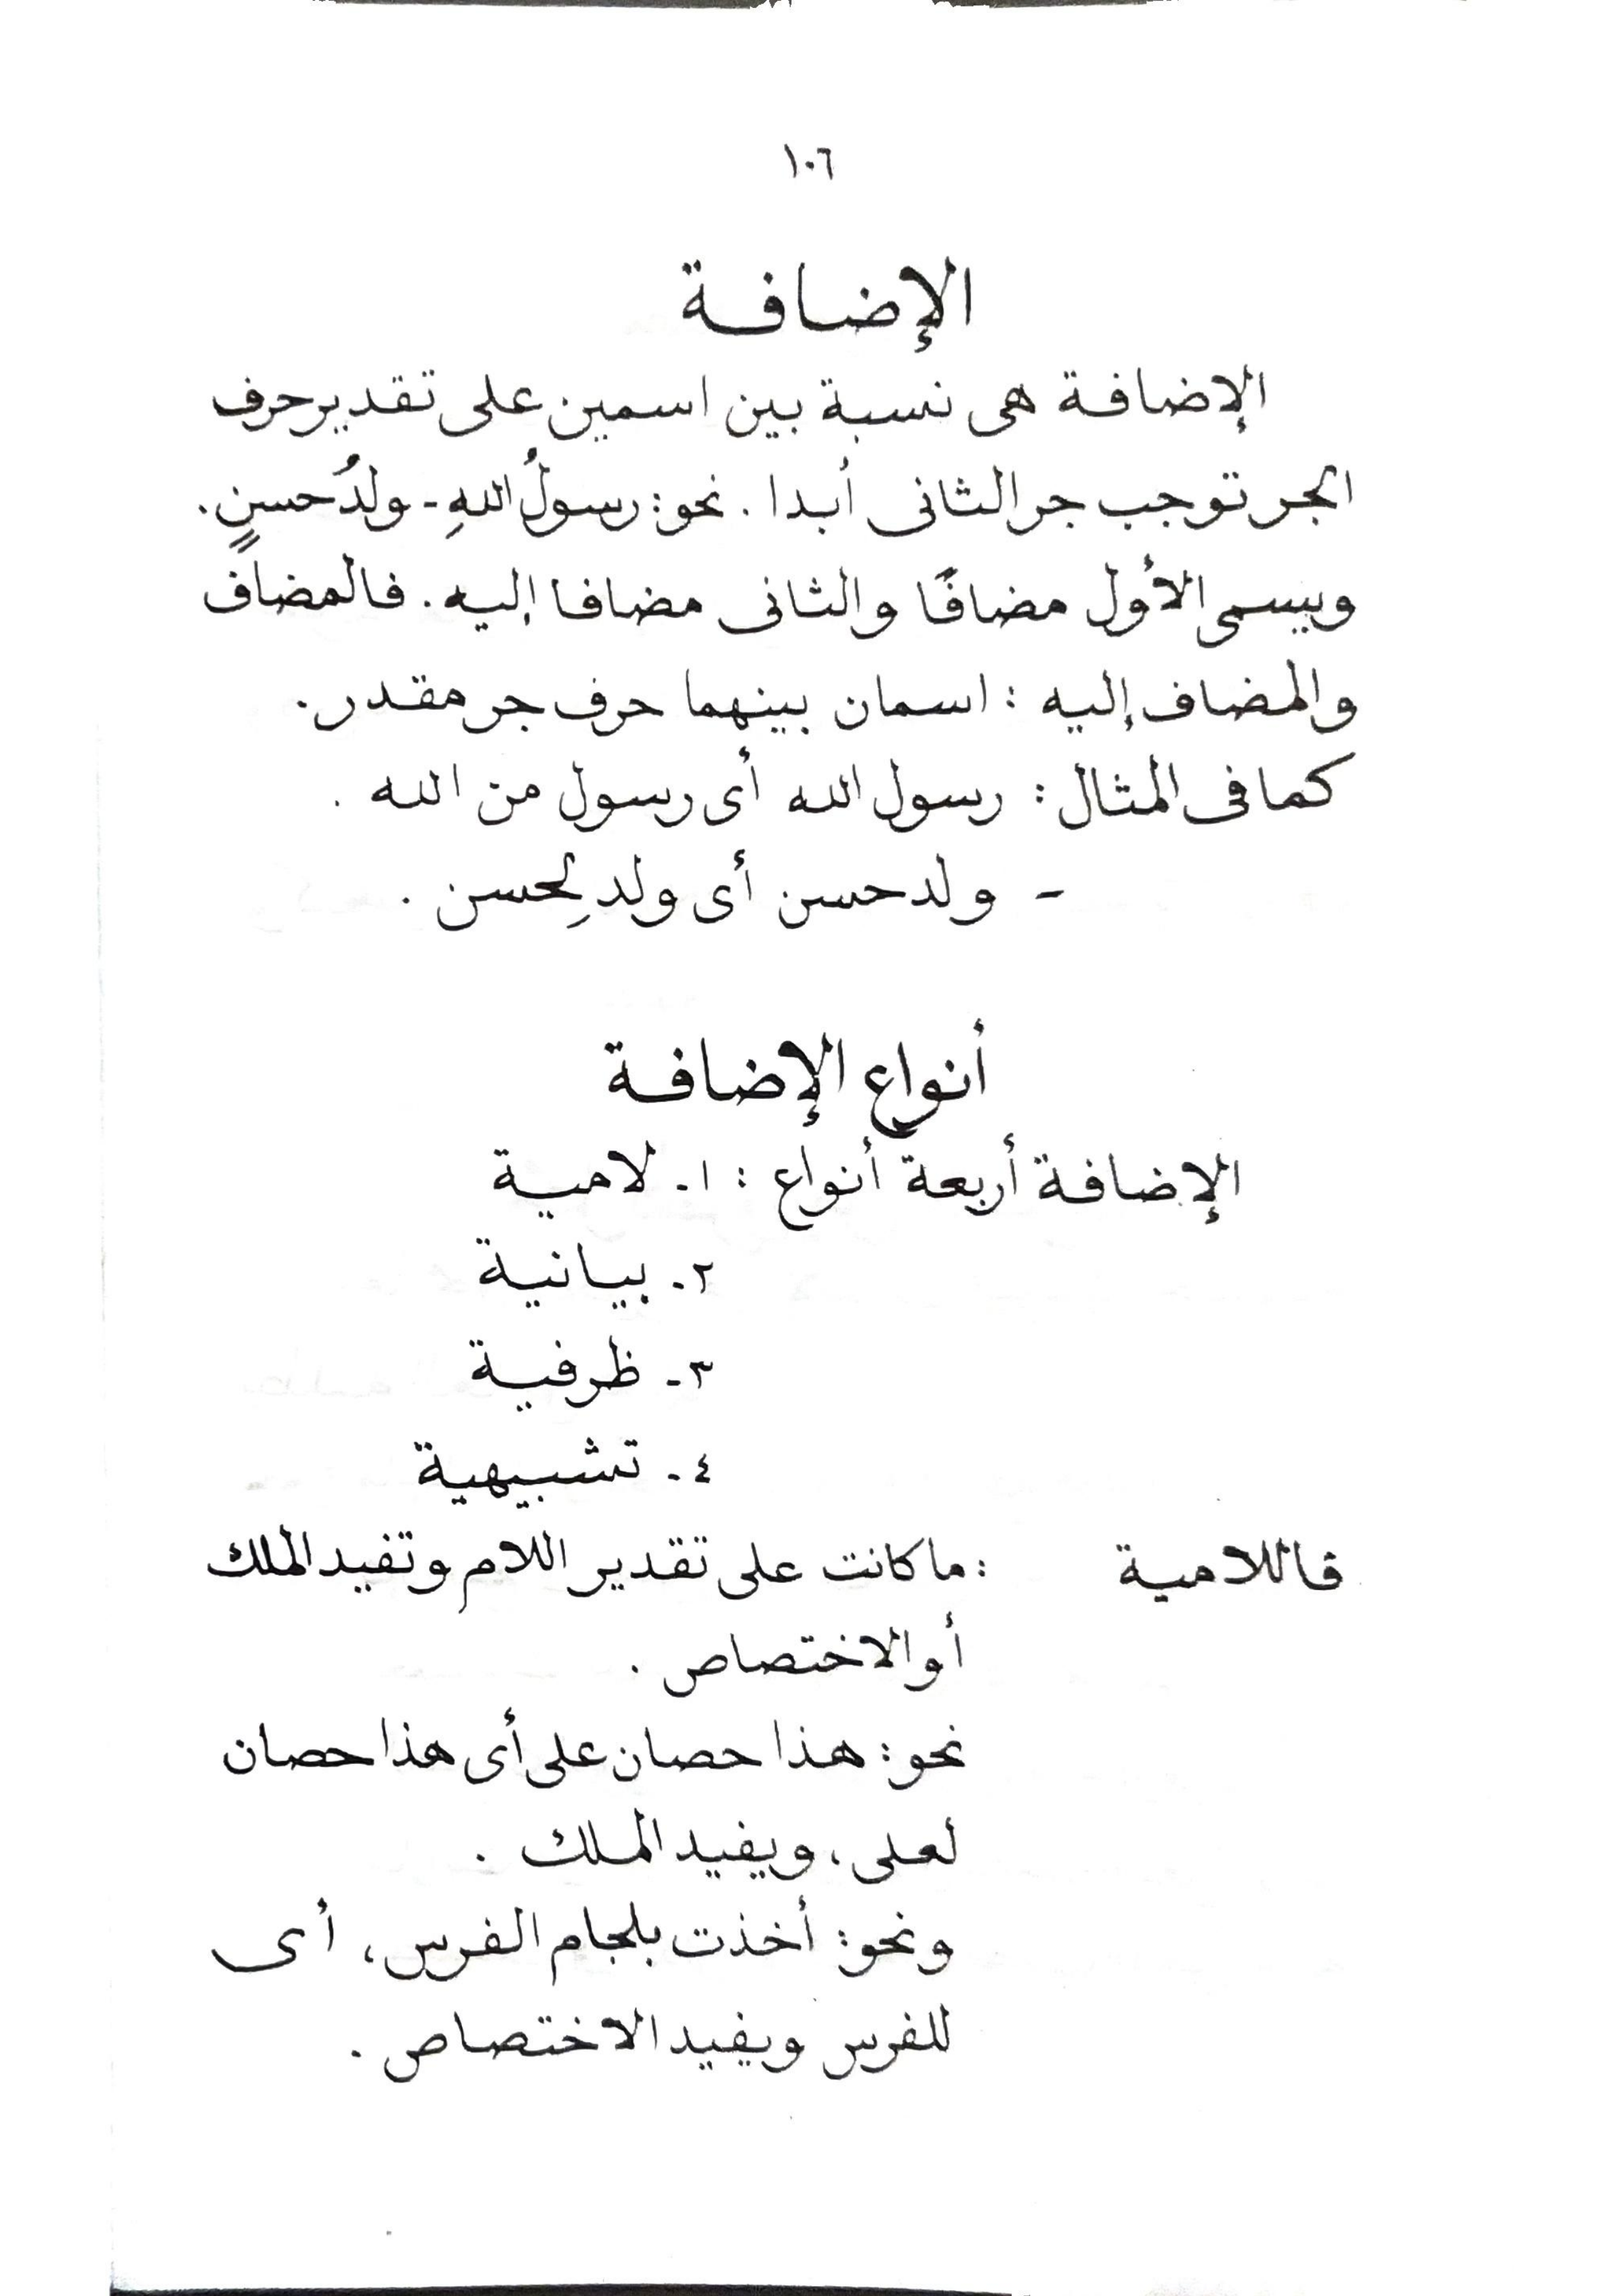 ١٠٦
الإضافة
الإضافة هى نسبة بين اسمين على تقدير حرف
الجر توجب جر الثانى أبدا . نحو: رسولُ اللهِ - ولدُ حسنٍ .
ويسمى الأول مضافًا والثانى مضافا إليه . فالمضاف
والمضاف إليه : اسمان بينهما حرف جر مقدر .
كما فى المثال : رسول الله أى رسول من الله .
- ولد حسن أى ولد لِحسن .
أنواع الإضافة
الإضافة أربعة أنواع : ١- لامية
٢- بيانية
٣- ظرفية
٤- تشبيهية
فاللامية : ما كانت على تقدير اللام وتفيد الملك
أو الاختصاص .
نحو : هذا حصان على أى هذا حصان
لعلى ، ويفيد الملك .
ونحو : أخذت بلجام الفرس ، أى
للفرس ويفيد الاختصاص .